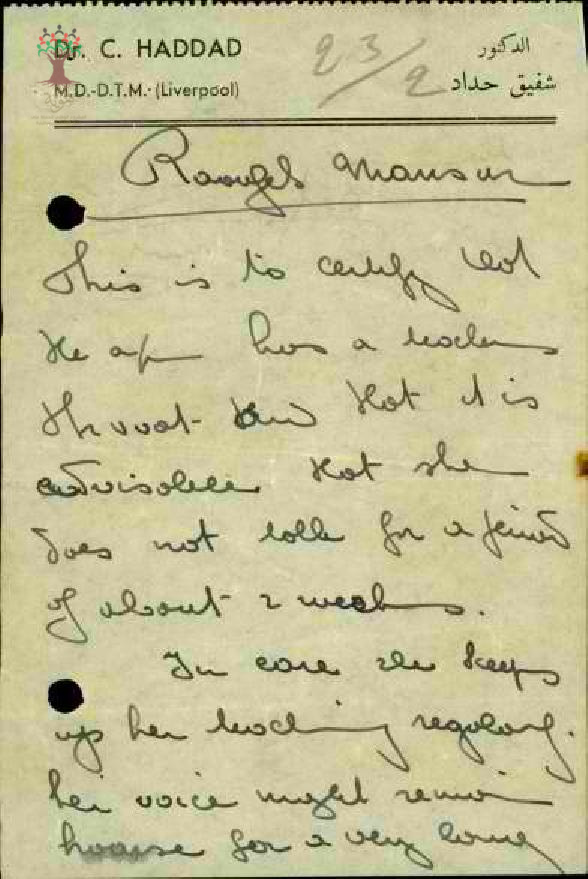 Dr. C. HADDAD
M.D.-D.T.M. (Liverpool)
23/2
الدكتور
شفيق حداد
Mansur
This is to certify that
the a/m has a teachers
throat and that it is
advisable that she
does not talk for a period
of about 2 weeks.
In case she keeps
up her teaching regularly.
her voice might remain
hoarse for a very long